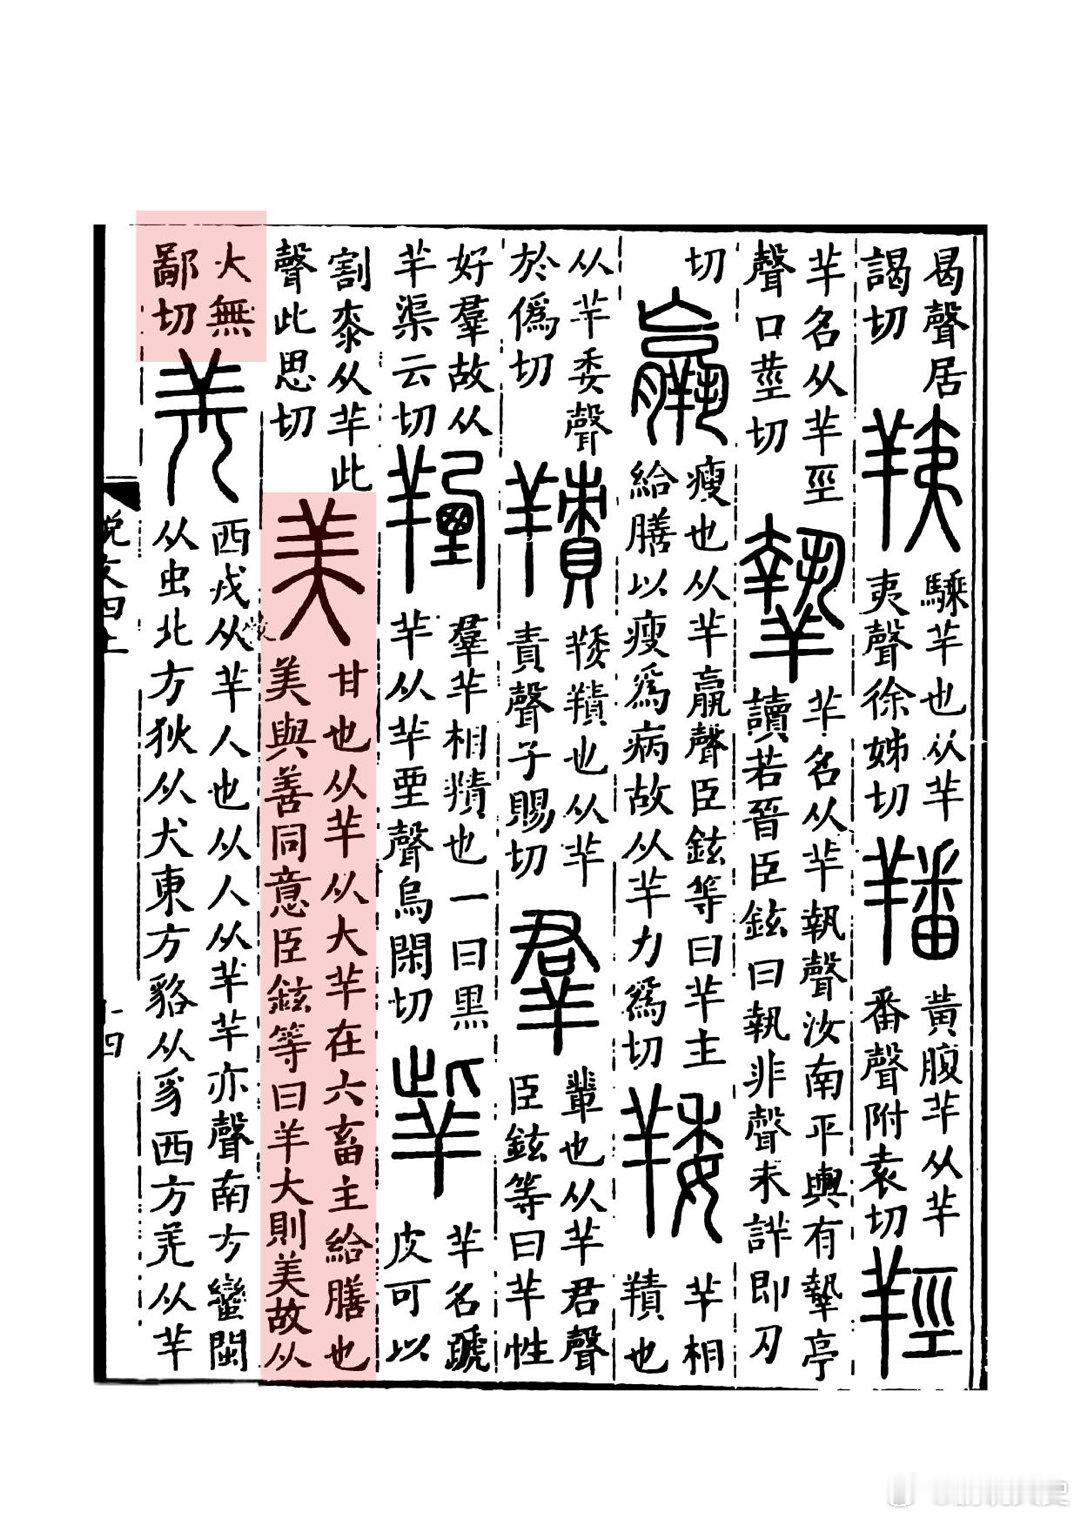 曷聲居
謁切
羠
騬羊也从羊
夷聲徐姊切
羳
黃腹羊从羊
番聲附袁切
羥
羊名从羊巠
聲口莖切
𦎷
羊名从羊執聲汝南平輿有摯亭
讀若晉臣鉉曰執非聲未詳即刃
切
羸
瘦也从羊𣎆聲臣鉉等曰羊主
給膳以瘦爲病故从羊力爲切
䍴
羊相
䍵也
从羊委聲
於僞切
䍵
䍴䍵也从羊
責聲子賜切
羣
輩也从羊君聲
臣鉉等曰羊性
好羣故从
羊渠云切
𦎣
羣羊相䍵也一曰黑
羊从羊垔聲烏閑切
𦍧
羊名蹏
皮可以
割桼从羊此
聲此思切
美
甘也从羊从大羊在六畜主給膳也
美與善同意臣鉉等曰羊大則美故从
大無
鄙切
羌
西戎从羊人也从人从羊羊亦聲南方蠻閩
从虫北方狄从犬東方貉从豸西方羌从羊
說文四上
十四